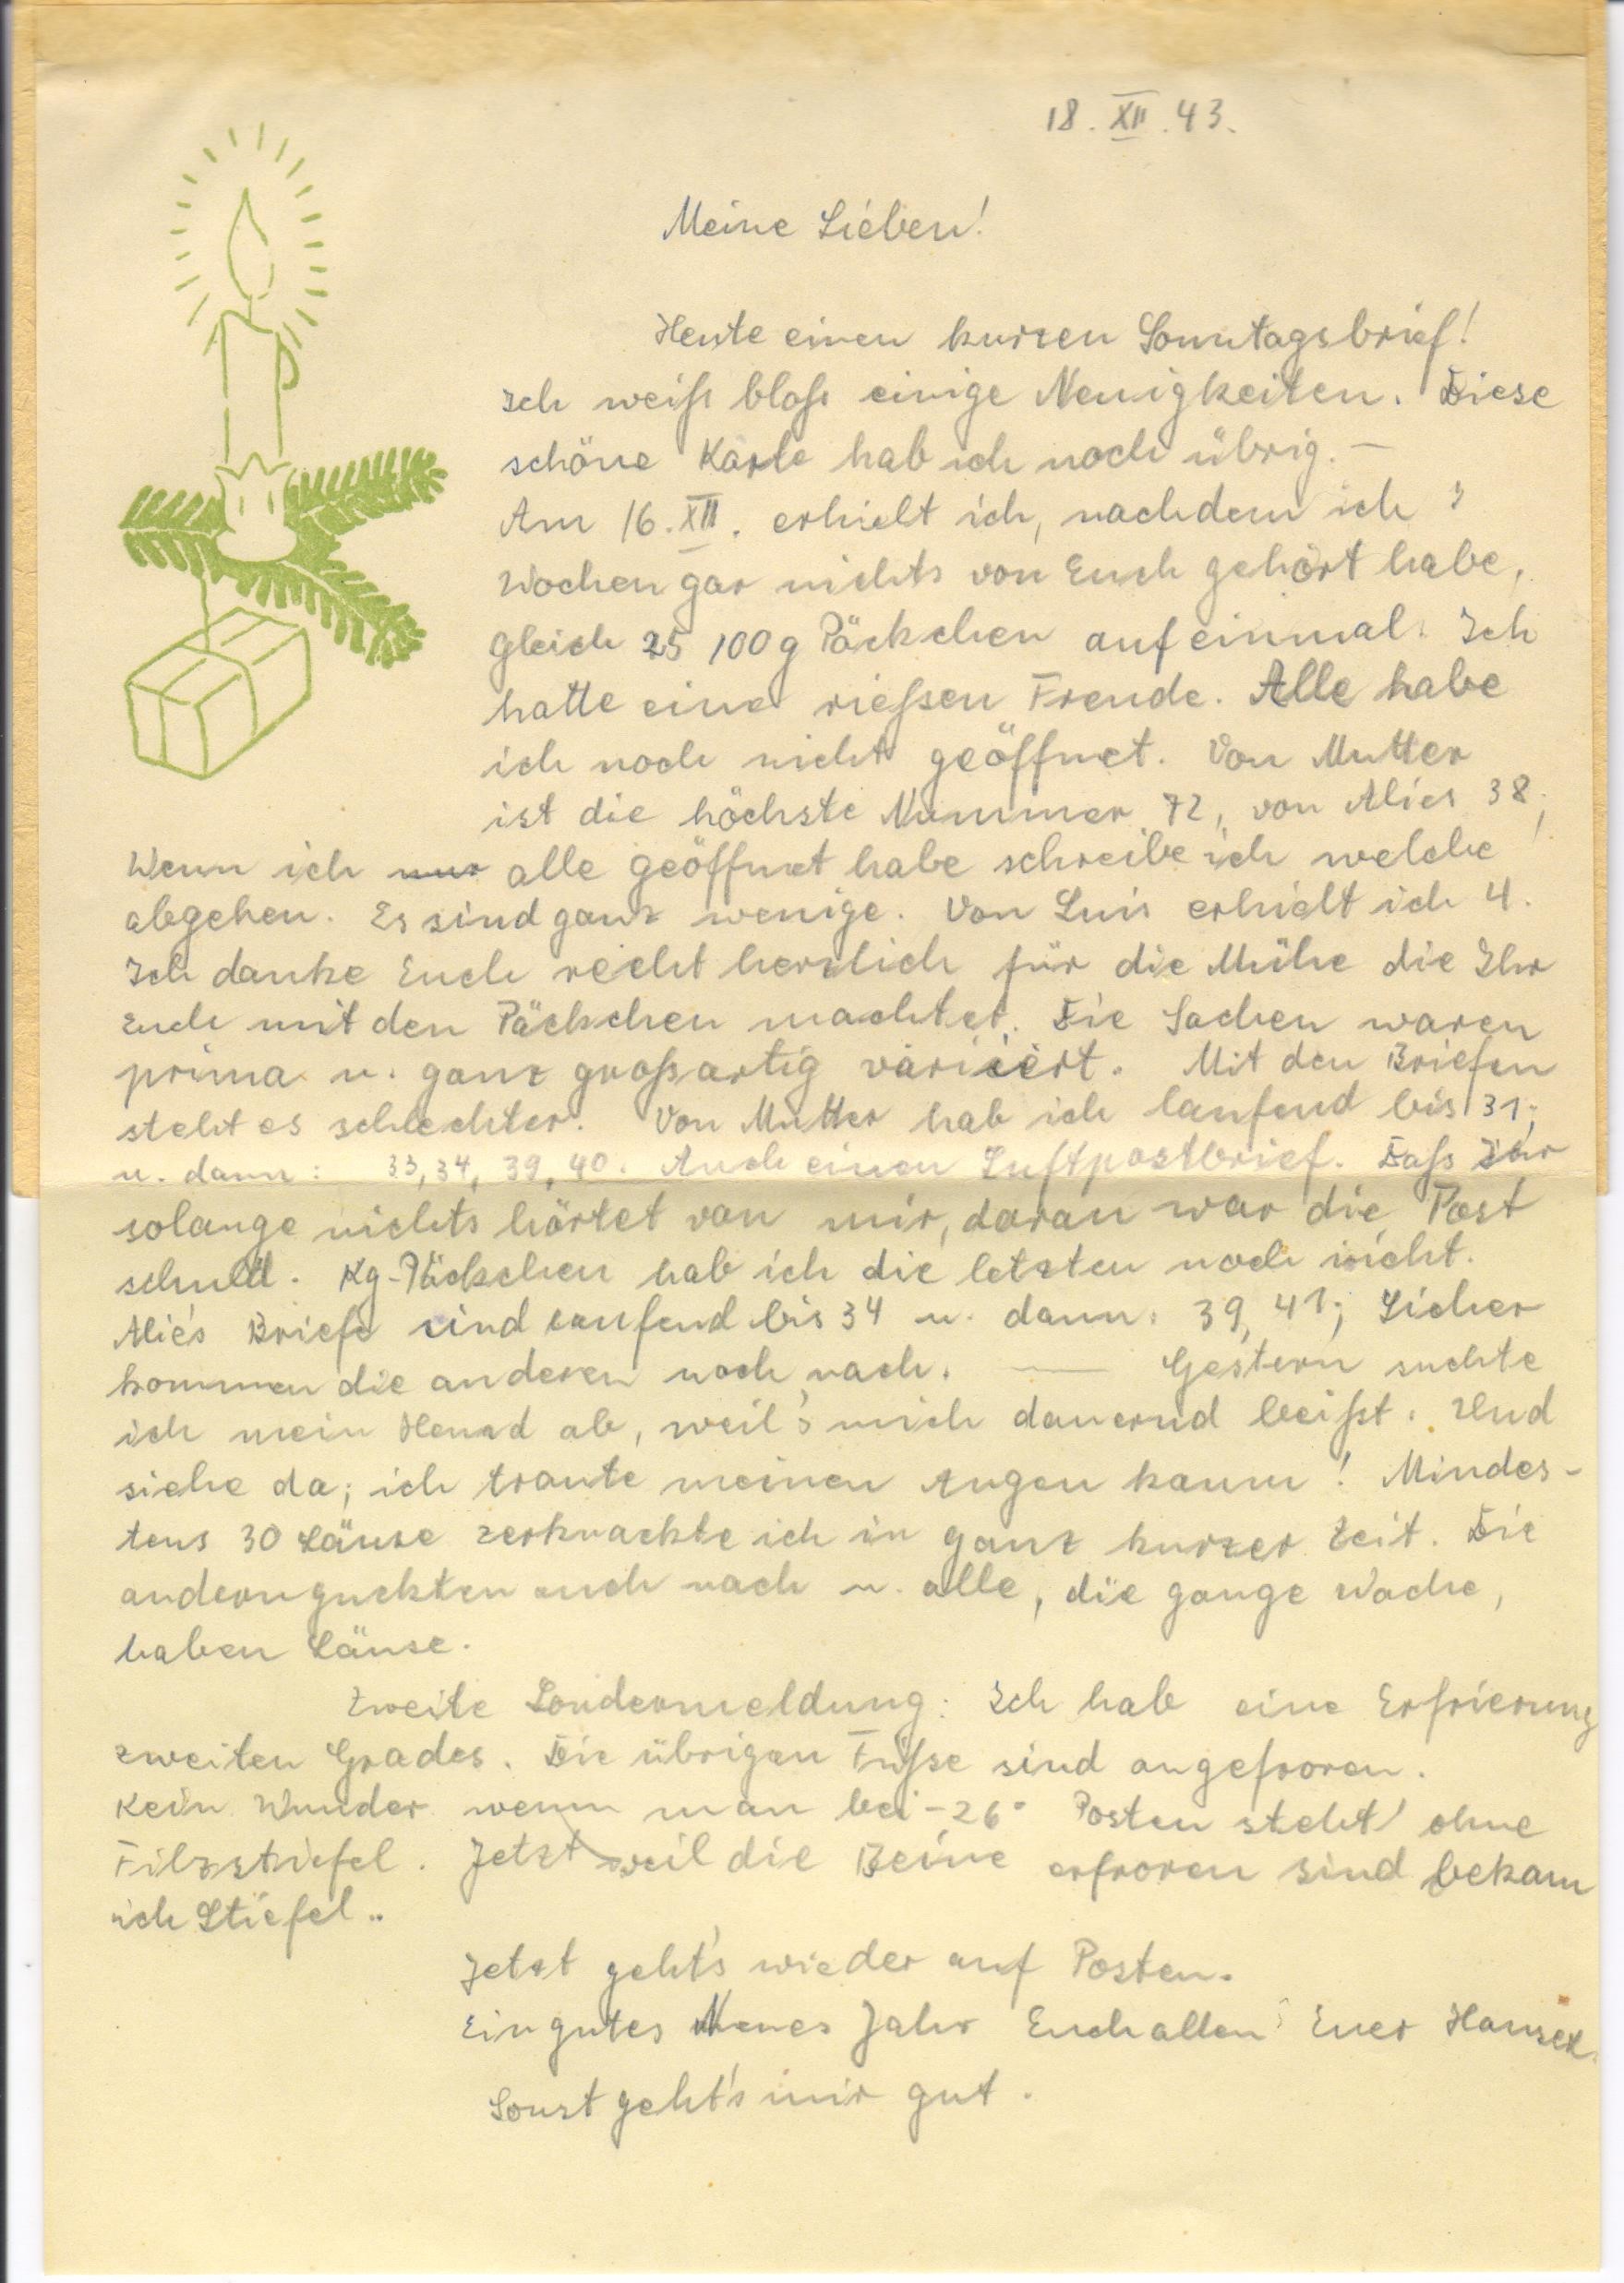 18. XII. 43.
Meine Lieben!
Heute einen kurzen Sonntagsbrief!
Ich weiß bloß einige Neuigkeiten. Diese
schöne Karte hab ich noch übrig. —
Am 16. XII. erhielt ich, nachdem ich
Wochen gar nichts von Euch gehört habe,
gleich 25 100g Päckchen auf einmal. Ich
hatte eine rießen Freude. Alle habe
ich noch nicht geöffnet. Von Mutter
ist die höchste Nummer 72, von Alies 38;
Wenn ich nur alle geöffnet habe schreibe ich welche
abgehen. Es sind ganz wenige. Von Luis erhielt ich 4.
Ich danke Euch recht herzlich für die Mühe die Ihr
Euch mit den Päckchen machtet. Die Sachen waren
prima u. ganz großartig variiert. Mit den Briefen
steht es schlechter. Von Mutter hab ich laufend bis 31;
u. dann: 33, 34, 39, 40. Auch einen Luftpostbrief. Daß Ihr
solange nichts hörtet von mir, daran war die Post
schuld. Kg-Päckchen hab ich die letzten noch nicht.
Alie's Briefe sind laufend bis 34 u. dann: 39, 41; Sicher
kommen die anderen noch nach. — Gestern suchte
ich mein Hemd ab, weil's mich dauernd beißt. Und
siehe da; ich traute meinen Augen kaum! Mindes-
tens 30 Läuse zerknackte ich in ganz kurzer Zeit. Die
andern guckten auch nach u. alle, die gange Wache,
haben Läuse.
Zweite Sondermeldung: Ich hab eine Erfrierung
zweiten Grades. Die übrigen Füße sind angefroren.
Kein Wunder wenn man bei -26° Posten steht ohne
Filzstiefel. Jetzt weil die Beine erfroren sind bekam
ich Stiefel..
Jetzt geht's wieder auf Posten.
Ein gutes Neues Jahr Euch allen Euer Hanser.
Sonst geht's mir gut.